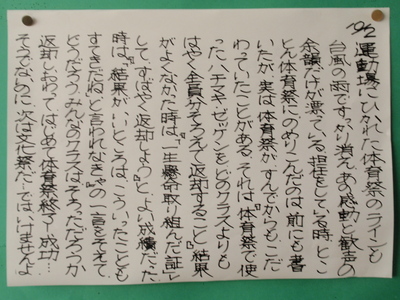 10/2
運動場にひかれた体育祭のラインも
台風の雨ですっかり消え、あの感動と歓声の
余韻だけが漂っている。担任をしている時、とこ
とん体育祭にのめりこんだのは前にも書
いたが、実は体育祭がすんでからもこだ
わっていたことがある。それは『体育祭で使
ったハチマキ・ゼッケンをどのクラスよりも
はやく全員分そろえて返却すること』。結果
がよくなかった時は、『一生懸命取り組んだ証と
して、すばやく返却しよう』と、よい成績だった
時は、『結果がいいところは、こういったことも
すてきだねと言われなきゃ』の一言をそえて。
どうだろう、みんなのクラスはそろっただろうか。
返却しおわってはじめて体育祭終了・成功…
そうでないのに、次は文化祭だ…ではいけませんよ